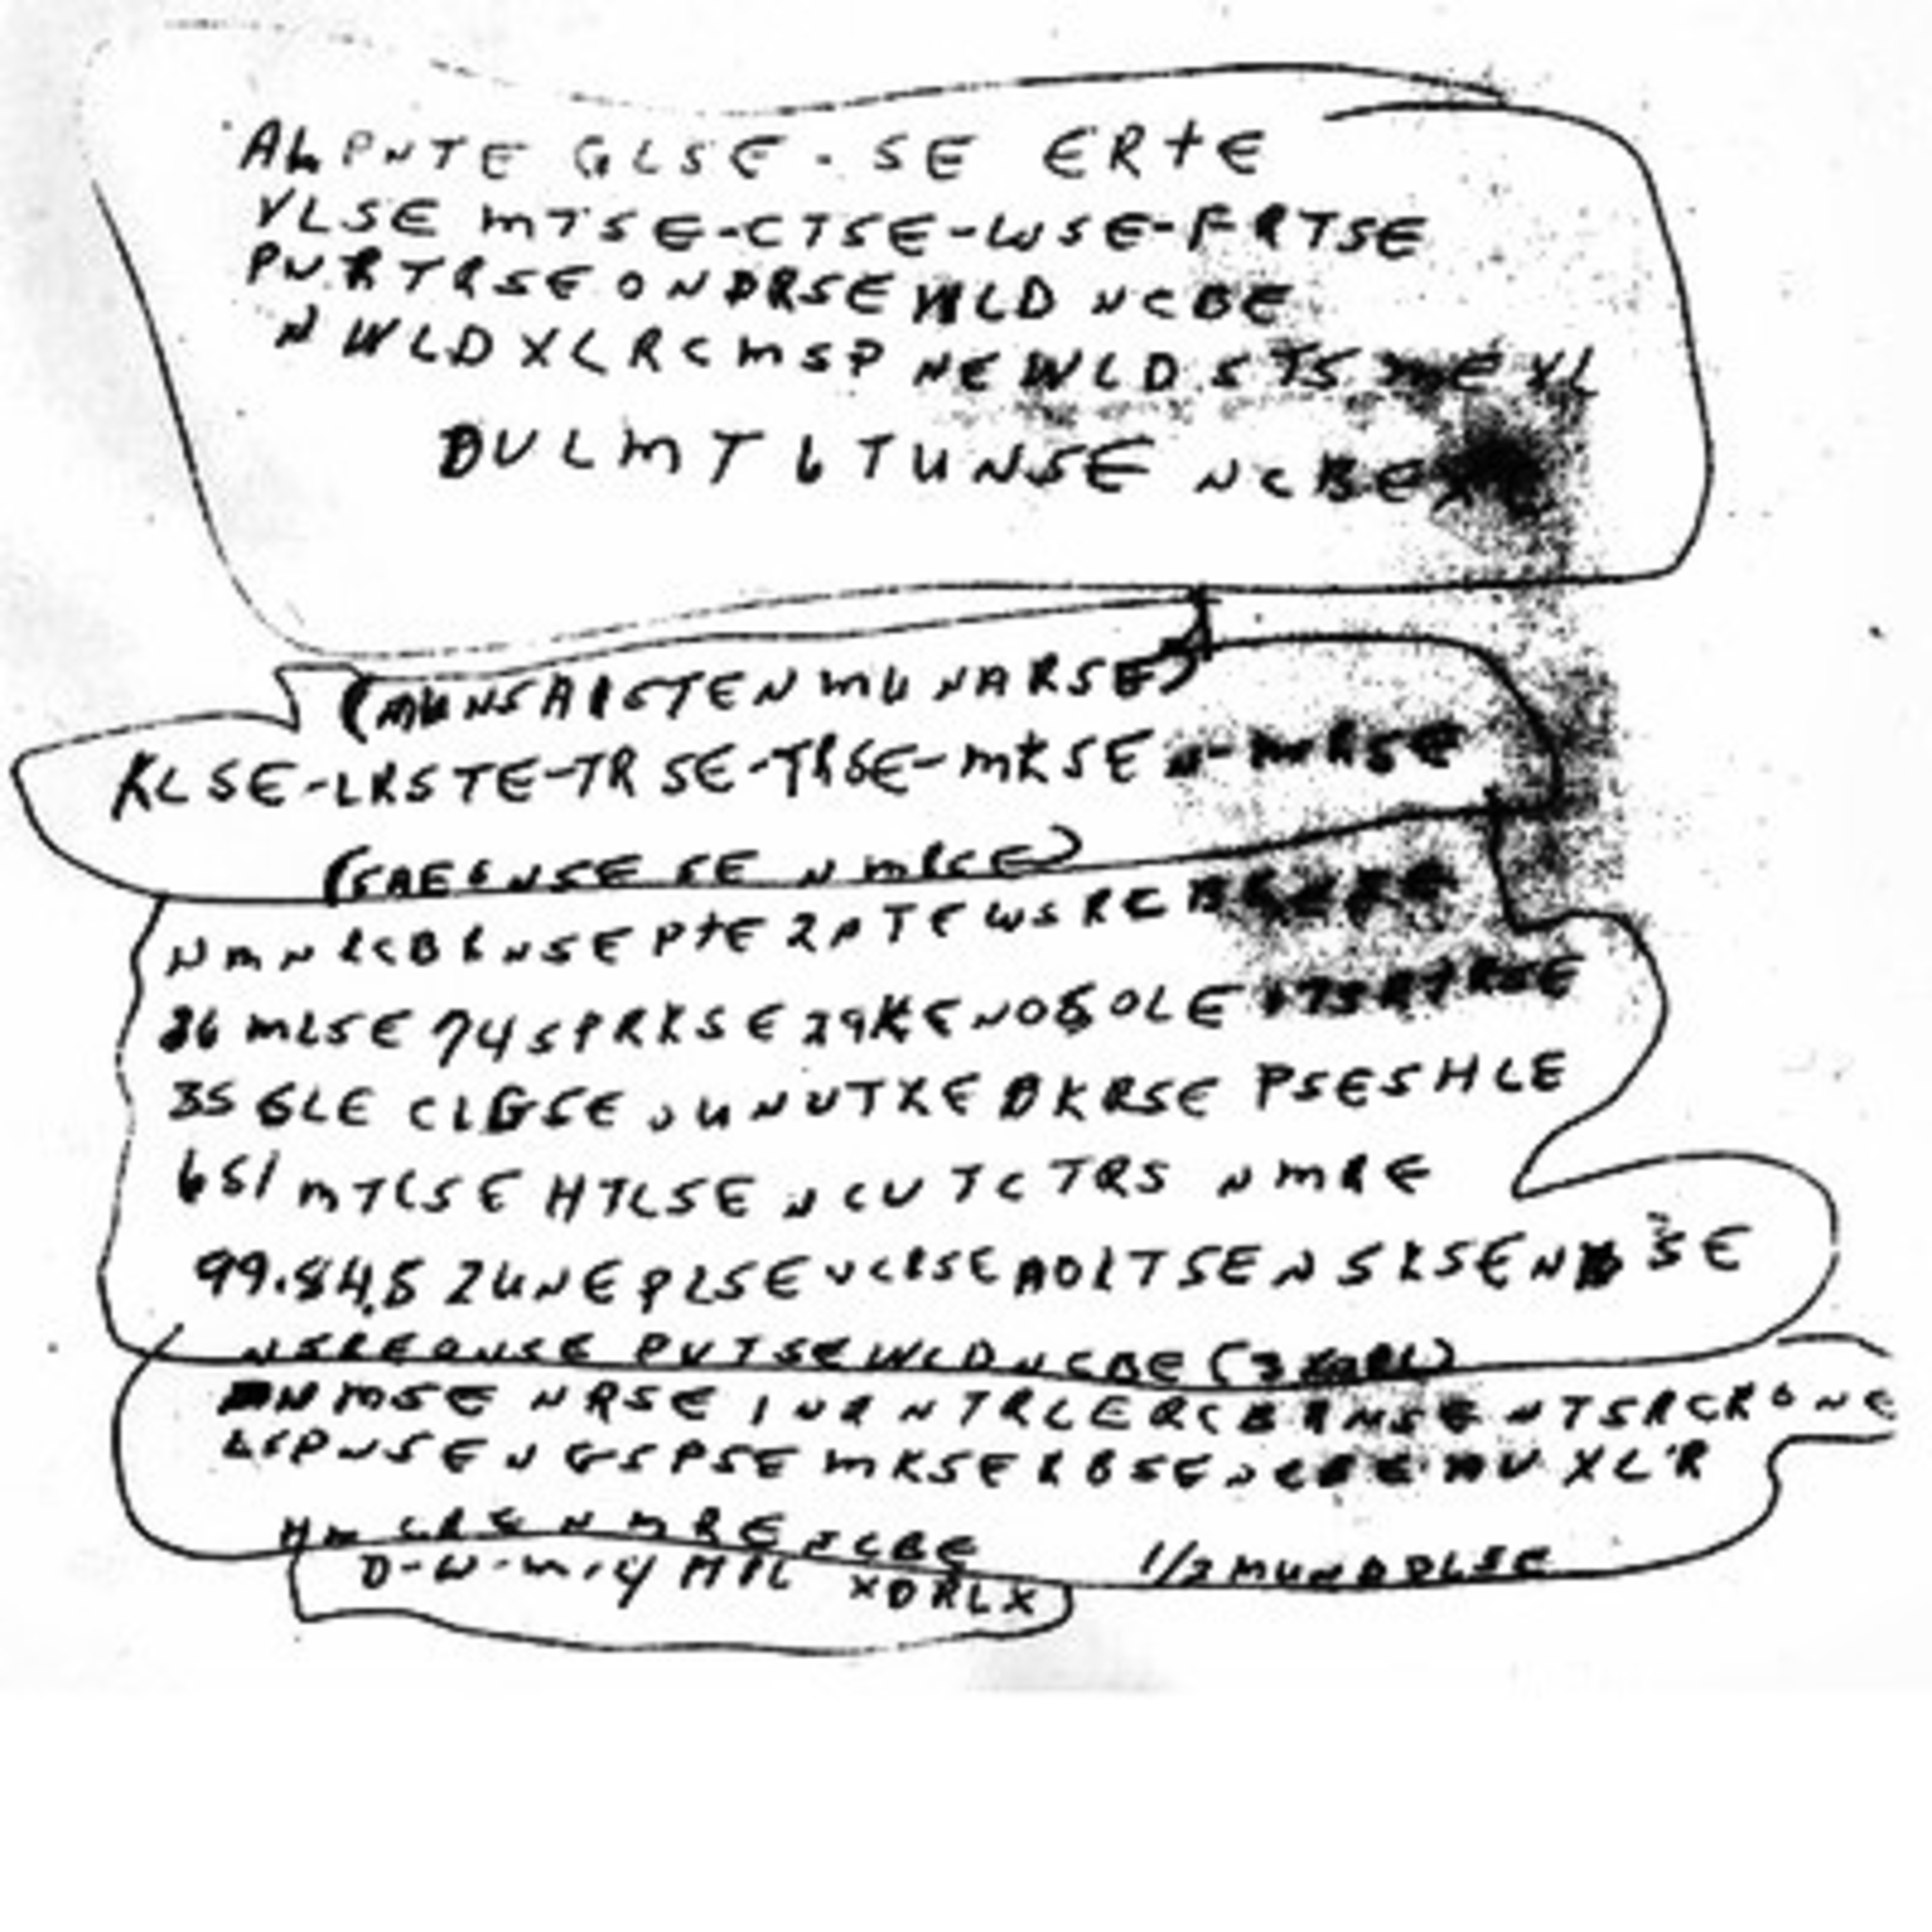 ALPNTE GLSE - SE ERTE
VLSE MTSE-CTSE-WSE-FRTSE
PURTRSE ONDRSE WLD NCBE
N WLD XLRCMSP NEWLD STS ME XL
DULMT 6 TUNSE NCBE
(MUNSAISTEN MUNARSE)
KLSE-LRSTE-TRSE-TRSE-MKSE N-MRSE
(SAEGNSE SE N MRSE)
NMNRCBRNSE PTE 2 PTE WSRC
36 MLSE 74 SPRKSE 29 KENOSOLE
35 GLE CLGSE UUNUTXE DKRSE PSESHLE
651 MTLSE HTLSE NCUTCTRS NMRE
99.84.5 ZUNE PLSE VCRSE AOLTSE NSKSE NB SE
NSREONSE PUTSE WLD NCBE
NMSE NRSE INRNTRLERCBRNSE NTSRCRONE
LSPNSE NGSPSE MKSERBSE NCBE XL'R
NMRE NCBE 1/2 MUNDDLSE
D-W-M-4 MIL XDRLX